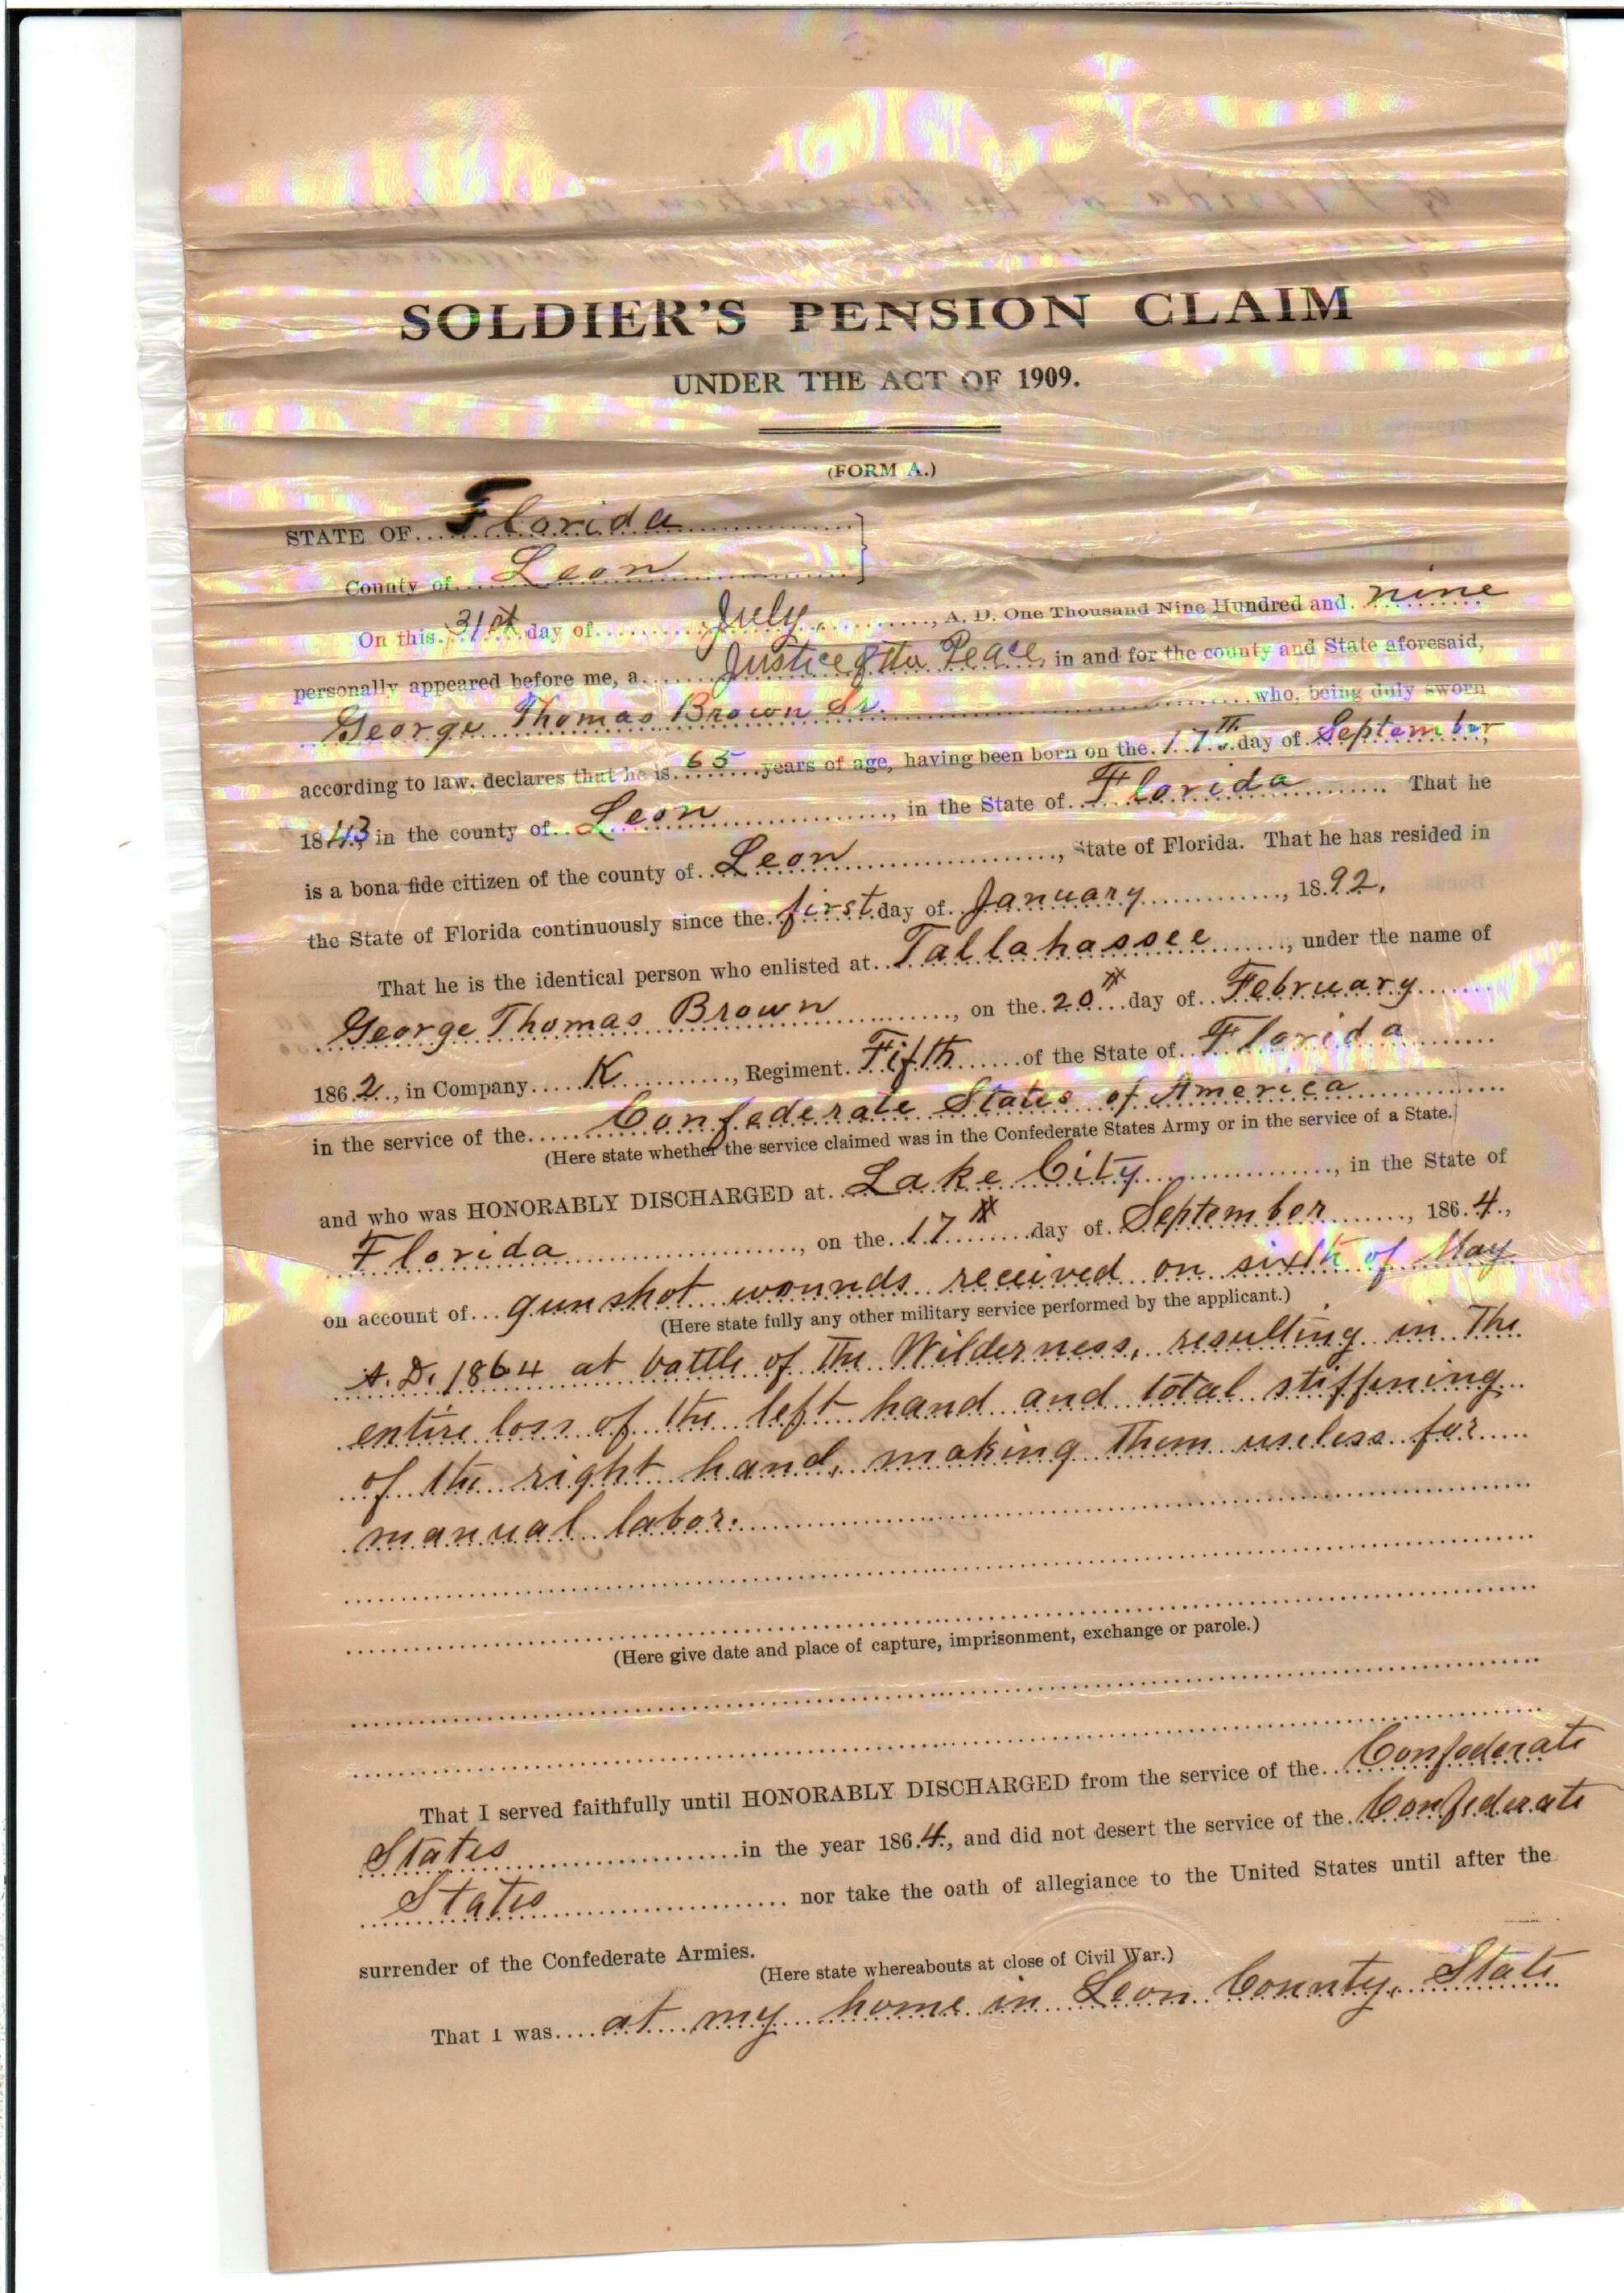 SOLDIER'S PENSION CLAIM
UNDER THE ACT OF 1909.
(FORM A.)
STATE OF Florida
County of Leon
On this 31st day of July, A. D. One Thousand Nine Hundred and nine
personally appeared before me, a Justice of the Peace in and for the county and State aforesaid,
George Thomas Brown Sr. who, being duly sworn
according to law, declares that he is 65 years of age, having been born on the 17th day of September
1843, in the county of Leon, in the State of Florida. That he
is a bona fide citizen of the county of Leon, State of Florida. That he has resided in
the State of Florida continuously since the first day of January, 1892.
That he is the identical person who enlisted at Tallahassee, under the name of
George Thomas Brown, on the 20th day of February
1862, in Company K, Regiment Fifth of the State of Florida
in the service of the Confederate States of America
(Here state whether the service claimed was in the Confederate States Army or in the service of a State.)
and who was HONORABLY DISCHARGED at Lake City, in the State of
Florida, on the 17th day of September, 1864,
on account of gunshot wounds received on sixth of May
(Here state fully any other military service performed by the applicant.)
A.D. 1864 at battle of the Wilderness, resulting in the
entire loss of the left hand and total stiffening
of the right hand, making them useless for
manual labor.
(Here give date and place of capture, imprisonment, exchange or parole.)
That I served faithfully until HONORABLY DISCHARGED from the service of the Confederate
States in the year 1864, and did not desert the service of the Confederate
States nor take the oath of allegiance to the United States until after the
surrender of the Confederate Armies.
(Here state whereabouts at close of Civil War.)
That I was at my home in Leon County, State